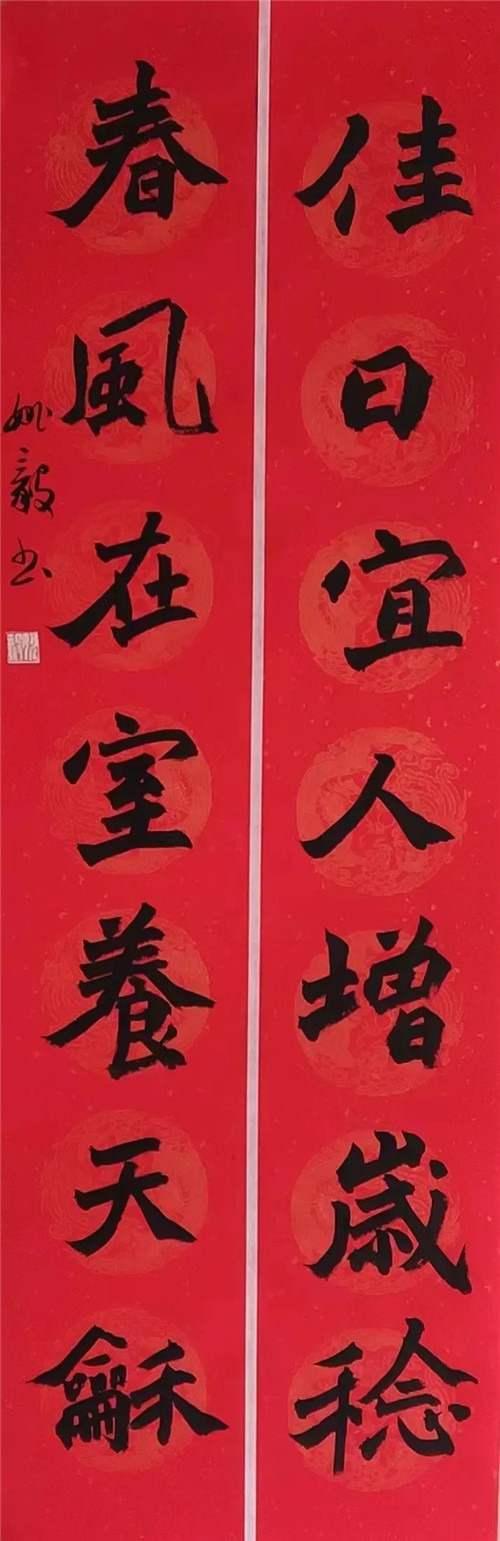 佳日宜人增歲稔
春風在室養天龢
姚毅书